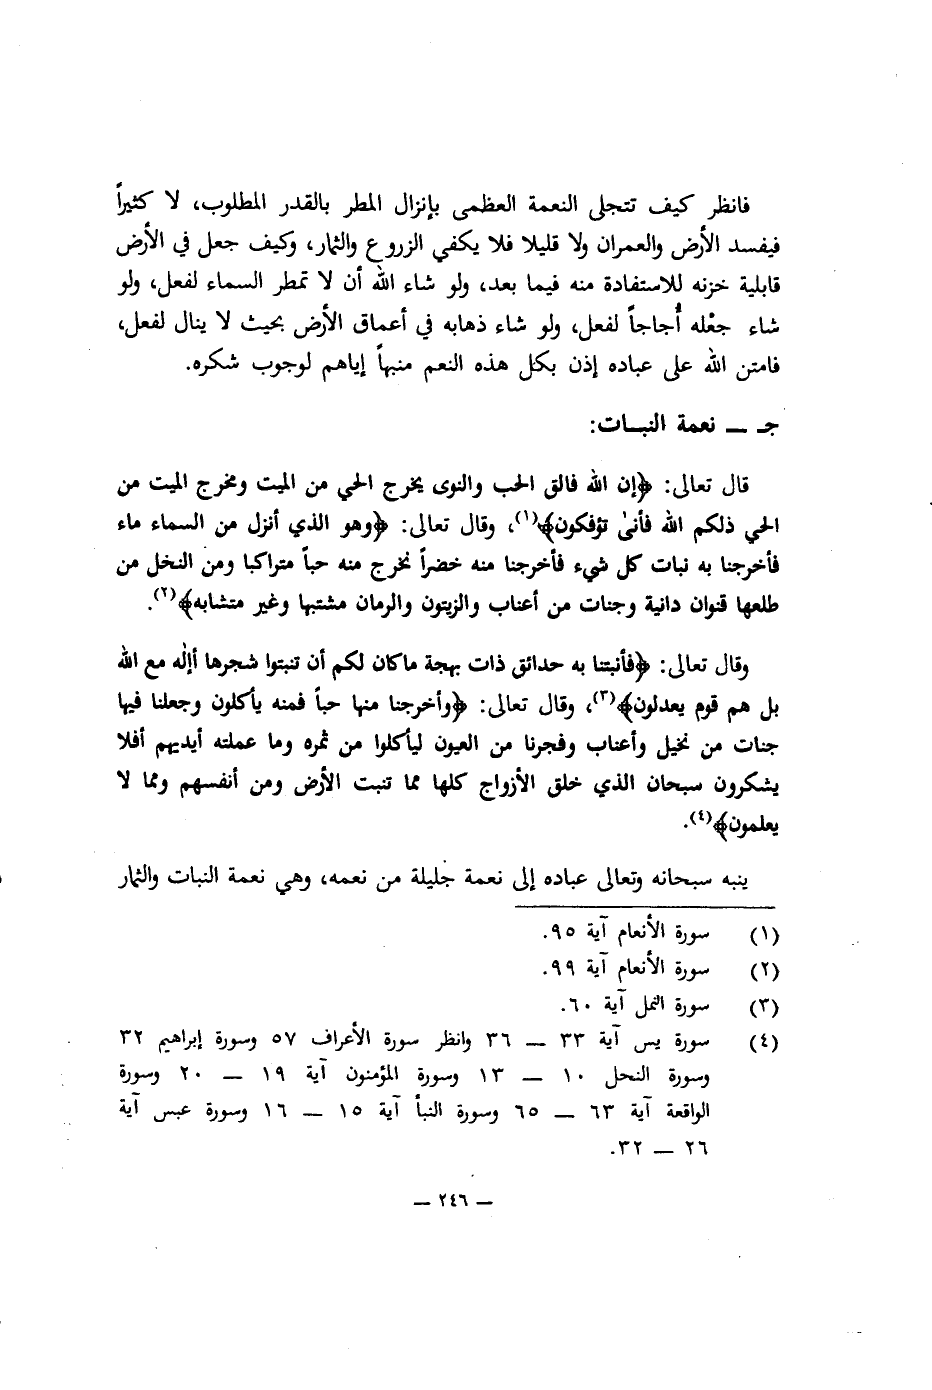 فانظر كيف تتجلى النعمة العظمى بإنزال المطر بالقدر المطلوب، لا كثيراً
فيفسد الأرض والعمران ولا قليلا فلا يكفي الزروع والثمار، وكيف جعل في الأرض
قابلية خزنه للاستفادة منه فيما بعد، ولو شاء الله أن لا تمطر السماء لفعل، ولو
شاء جعْله أُجاجاً لفعل، ولو شاء ذهابه في أعماق الأرض بحيث لا ينال لفعل،
فامتن الله على عباده إذن بكل هذه النعم منبهاً إياهم لوجوب شكره.
جـ ــ نعمة النبــات:
قال تعالى: ﴿إن الله فالق الحب والنوى يخرج الحي من الميت ومخرج الميت من
الحي ذلكم الله فأنىٰ تؤفكون﴾(١)، وقال تعالى: ﴿وهو الذي أنزل من السماء ماء
فأخرجنا به نبات كل شيء فأخرجنا منه خضراً نخرج منه حباً متراكبا ومن النخل من
طلعها قنوان دانية وجنات من أعناب والزيتون والرمان مشتبها وغير متشابه﴾(٢).
وقال تعالى: ﴿فأنبتنا به حدائق ذات بهجة ماكان لكم أن تنبتوا شجرها أإلٰه مع الله
بل هم قوم يعدلون﴾(٣)، وقال تعالى: ﴿وأخرجنا منها حباً فمنه يأكلون وجعلنا فيها
جنات من نخيل وأعناب وفجرنا من العيون ليأكلوا من ثمره وما عملته أيديهم أفلا
يشكرون سبحان الذي خلق الأزواج كلها مما تنبت الأرض ومن أنفسهم ومما لا
يعلمون﴾(٤).
ينبه سبحانه وتعالى عباده إلى نعمة جليلة من نعمه، وهي نعمة النبات والثمار
(١) سورة الأنعام آية ٩٥.
(٢) سورة الأنعام آية ٩٩.
(٣) سورة النمل آية ٦٠.
(٤) سورة يس آية ٣٣ ــ ٣٦ وانظر سورة الأعراف ٥٧ وسورة إبراهيم ٣٢
وسورة النحل ١٠ ــ ١٣ وسورة المؤمنون آية ١٩ ــ ٢٠ وسورة
الواقعة آية ٦٣ ــ ٦٥ وسورة النبأ آية ١٥ ــ ١٦ وسورة عبس آية
٢٦ ــ ٣٢.
ــ ٢٤٦ ــ